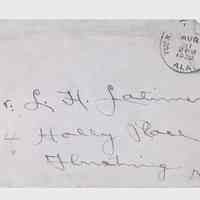 AUG
31
ALA
r. L. H. Latimer
4 Holly Place
Flushing